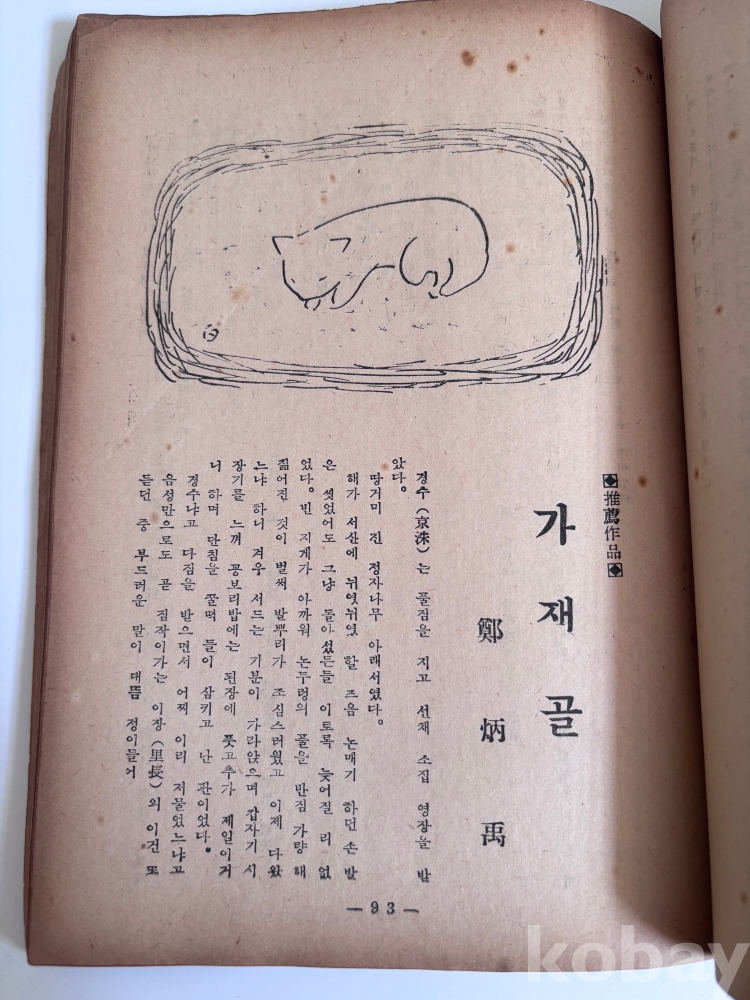 ◆推薦作品◆
가재골
鄭炳禹
경수(京洙)는 풀짐을 지고 선채 소집 영장을 받
았다.
땅거미 진 정자나무 아래서였다.
해가 서산에 뉘엿뉘엿 할 즈음 논매기 하던 손 발
은 씻었어도 그냥 돌아섰든들 이토록 늦어질 리 없
었다. 빈 지게가 아까워 논두렁의 풀을 반짐 가량 해
짊어진 것이 벌써 발뿌리가 조심스러웠고 이제 다왔
느냐 하니 겨우 서드는 기분이 가라앉으며 갑자기 시
장기를 느껴 꽁보리밥에는 된장에 풋고추가 제일이거
니 하며 단침을 꿀떡 들이 삼키고 난 판이었다.
경수냐고 다짐을 받으면서 어찌 이리 저물었느냐고
음성만으로도 곧 짐작이가는 이장(里長)의 이건 또
듣던 중 부드러운 말이 대뜸 정이들어
— 93 —
kobay